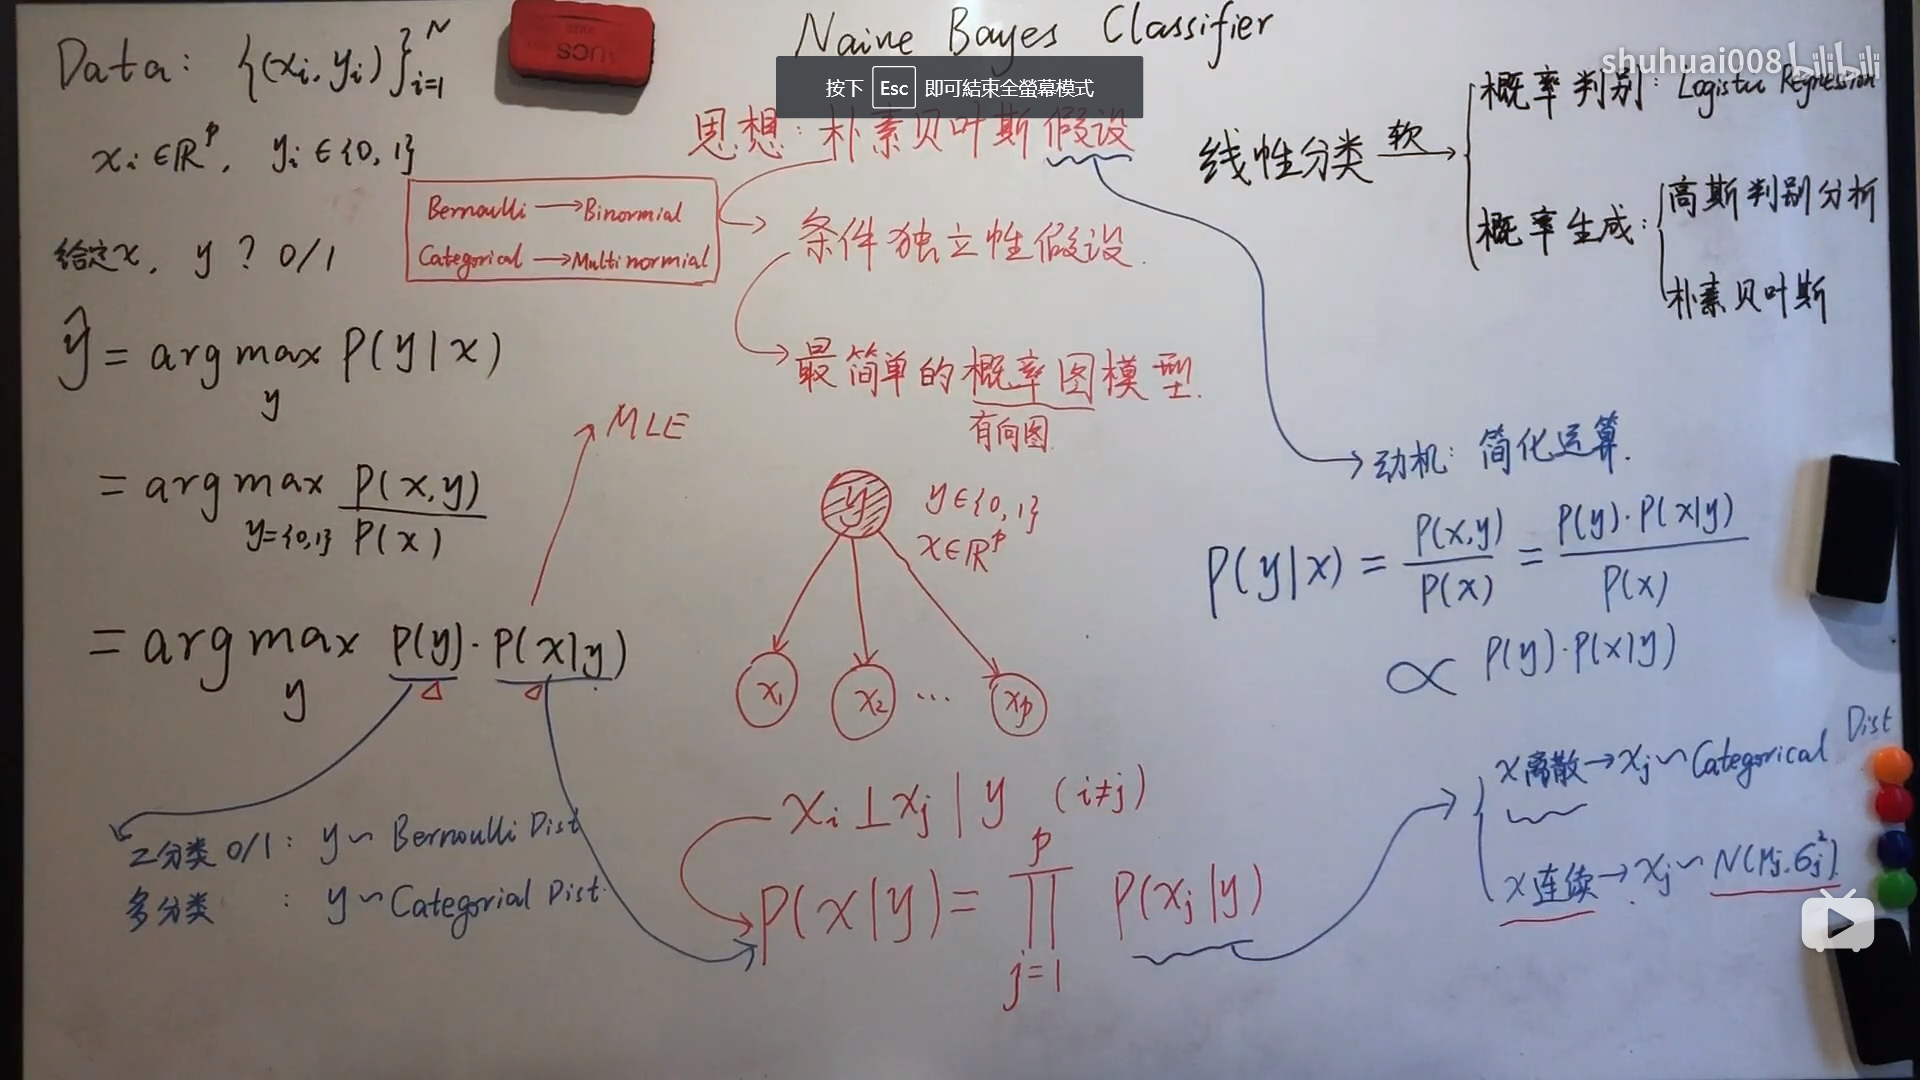 Naive Bayes Classifier
shuhuai008 bilibili
按下 Esc 即可結束全螢幕模式
Data: {(xᵢ, yᵢ)}ᴺᵢ₌₁
xᵢ ∈ ℝᵖ, yᵢ ∈ {0, 1}
给定x, y ? 0/1
ŷ = arg max_y P(y|x)
= arg max_{y={0,1}} P(x,y) / P(x)
= arg max_y P(y)·P(x|y)
△ △
MLE
2分类 0/1: y ~ Bernoulli Dist
多分类 : y ~ Categorial Dist.
思想: 朴素贝叶斯假设
Bernoulli → Binormial
Categorical → Multinormial
条件独立性假设.
最简单的概率图模型.
有向图
y
y∈{0, 1}
x∈ℝᵖ
x₁ x₂ ... xₚ
xᵢ ⊥ xⱼ | y (i≠j)
P(x|y) = ∏_{j=1}^{p} P(xⱼ|y)
线性分类 软→
概率判别: Logistic Regression
概率生成:
高斯判别分析
朴素贝叶斯
动机: 简化运算.
P(y|x) = P(x,y) / P(x) = P(y)·P(x|y) / P(x)
∝ P(y)·P(x|y)
x离散 → xⱼ ~ Categorical Dist
x连续 → xⱼ ~ N(μⱼ, σⱼ²)
UCS